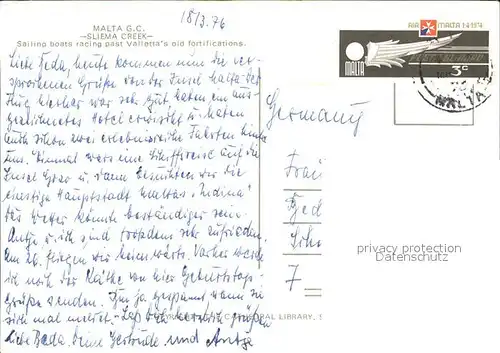 MALTA G.C.
—SLIEMA CREEK—
Sailing boats racing past Valletta's old fortifications.
18/3.76
Liebe Beda, heute kommen nun die ver-
sprochenen Grüße von der Insel Malta. Der
Flug hierher war sehr gut, haben ein aus-
gezeichnetes Hotel erwischt u. haben
auch schon zwei erlebnisreiche Fahrten hinter
uns. Einmal war's eine Schiffsreise auf die
Insel Gozo u. dann besuchten wir die
einstige Hauptstadt Maltas "Mdina"
Das Wetter könnte beständiger sein.
Antje u. ich sind trotzdem sehr zufrieden.
Am 20. fliegen wir heimwärts. Vorher werde
ich noch der Käthe von hier Geburtstags-
grüße senden. Bin ja gespannt wann sie
sich mal meldet. Laß Dich herzlich grüßen
liebe Beda, Deine Gertrude und Antje
AIR MALTA 1-4-1974
MALTA
3c
MALTA
Germany
Frau
Bed
7
LIBRARY,
privacy protection
Datenschutz